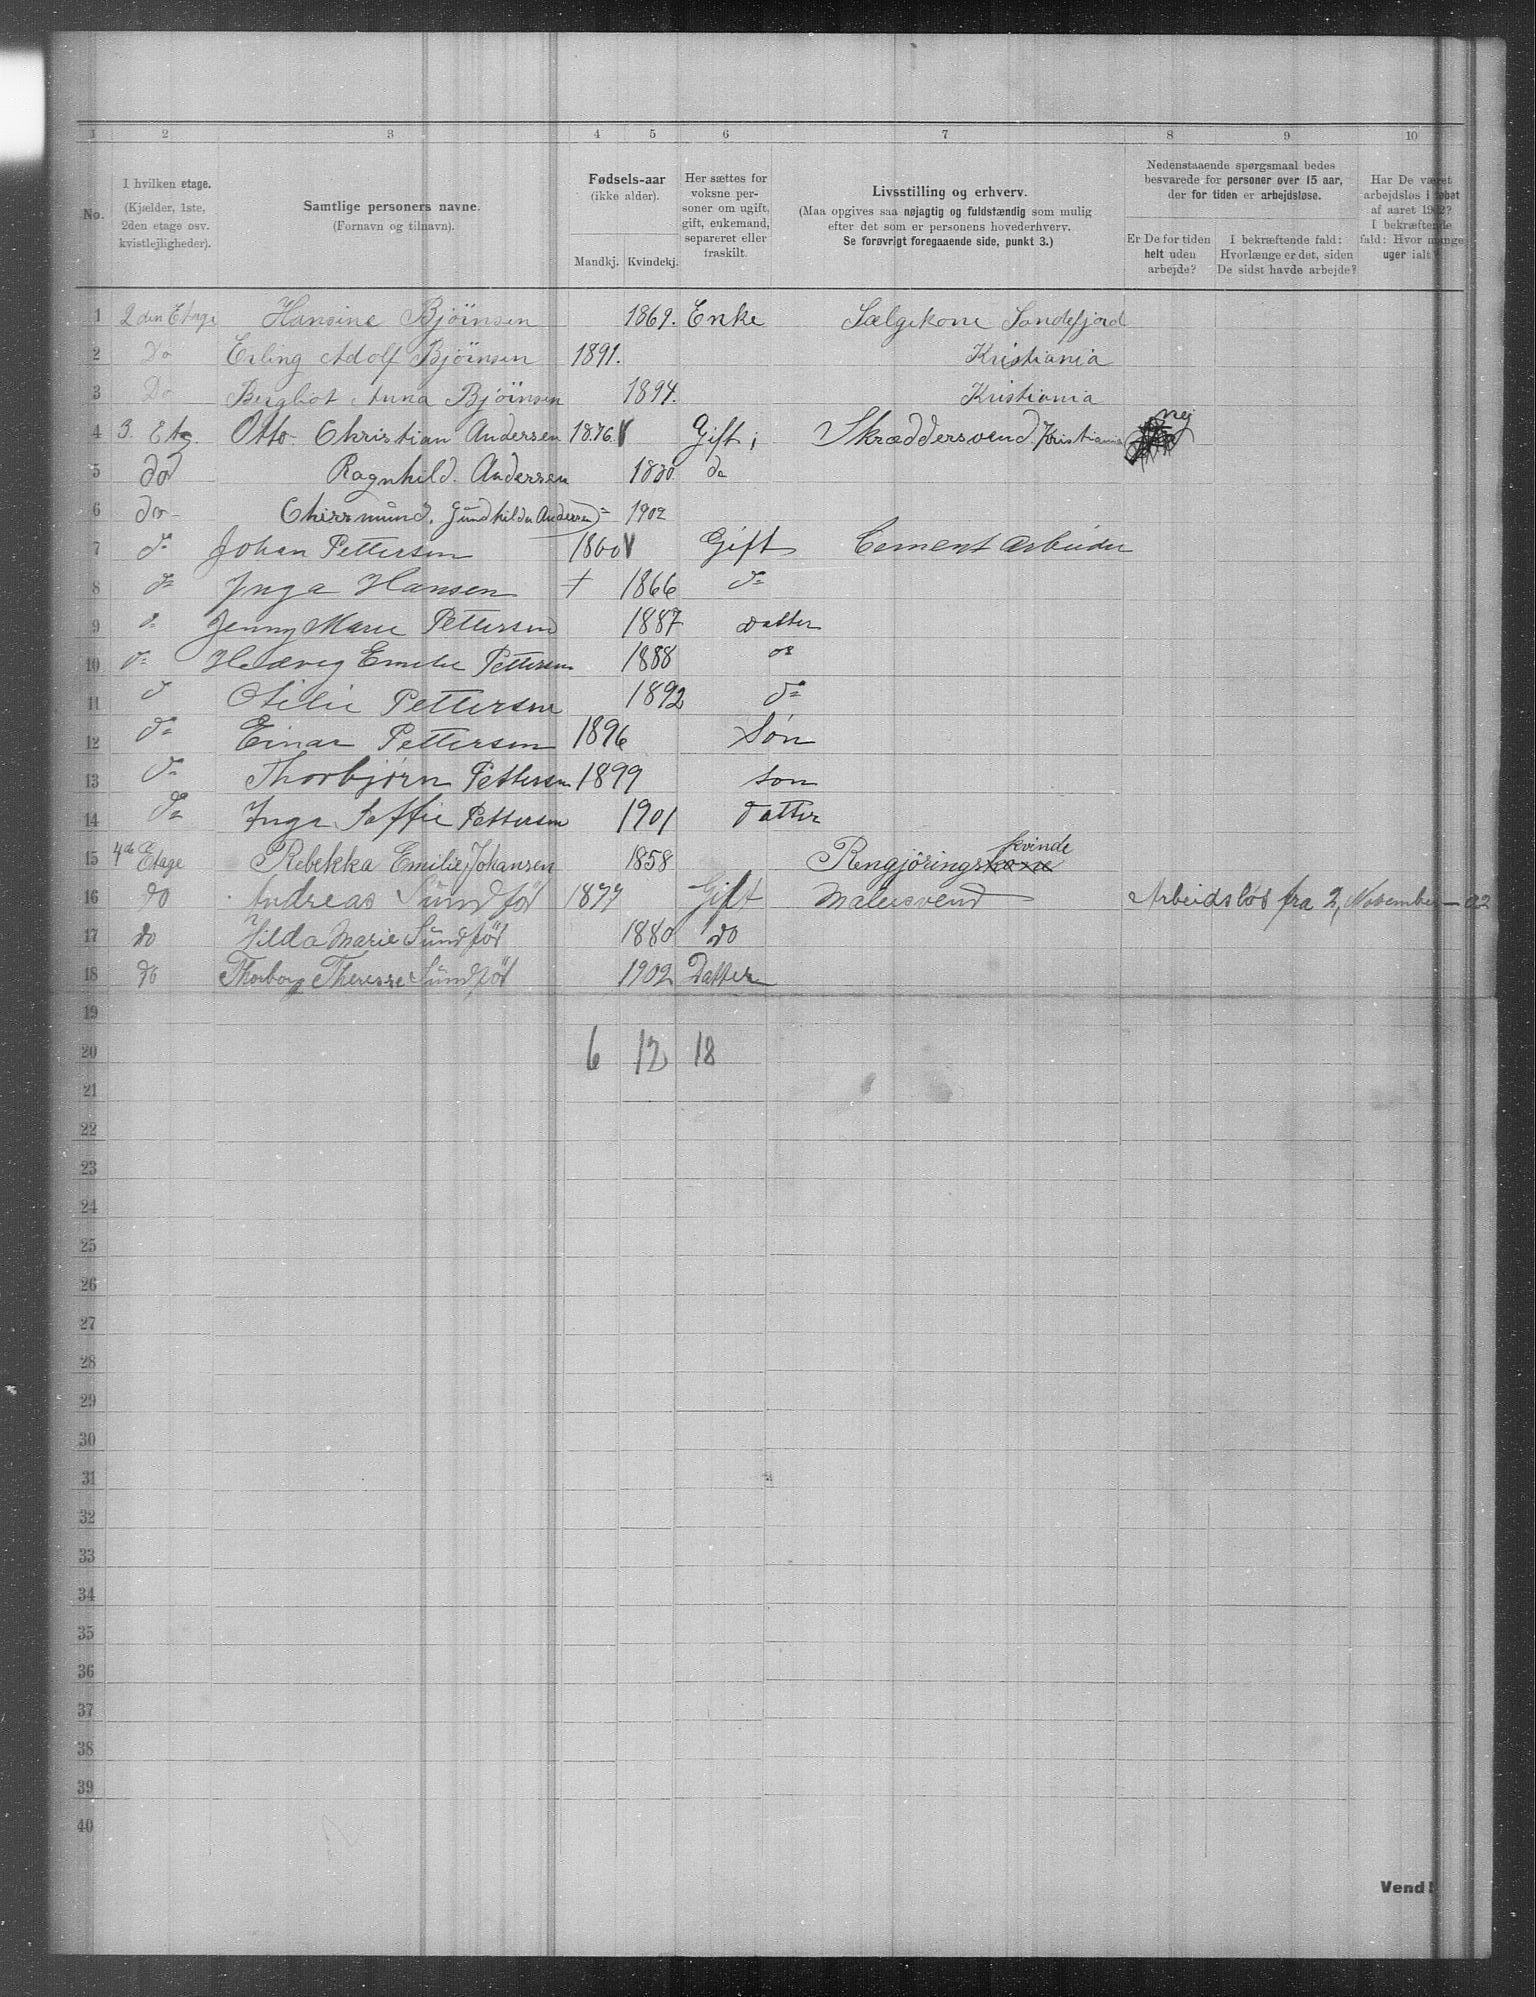 1 2 3 4 5 6 7 8 9 10
No.
I hvilken etage.
(Kjælder, 1ste,
2den etage osv.
kvistlejligheder).
Samtlige personers navne.
(Fornavn og tilnavn).
Fødsels-aar
(ikke alder).
Mandkj. Kvindekj.
Her sættes for
voksne per-
soner om ugift,
gift, enkemand,
separeret eller
fraskilt.
Livsstilling og erhverv.
(Maa opgives saa nøjagtig og fuldstændig som mulig
efter det som er personens hovederhverv.
Se forøvrigt foregaaende side, punkt 3.)
Nedenstaaende spørgsmaal bedes
besvarede for personer over 15 aar,
der for tiden er arbejdsløse.
Er De for tiden
helt uden
arbejde?
I bekræftende fald:
Hvorlænge er det, siden
De sidst havde arbejde?
Har De været
arbejdsløs i løbet
af aaret 1902?
I bekræftende
fald: Hvor mange
uger ialt?
1 2den Etage Hansine Bjöinsen 1869. Enke Sælgekone Sandefjord
2 Do Erling Adolf Bjöinsen 1891. Kristiania
3 Do Bergliot Anna Bjöinsen 1894. Kristiania
4 3. Etg. Otto Christian Andersen 1876. Gift; Skræddersvend Kristiania nej
5 do Ragnhild. Andersen 1880. do
6 do Gundhilda Andersen 1902
7 do Johan Pettersen 1860 Gift Cement Arbeider
8 do Inga Hansen + 1866 do
9 do Jenny Marie Pettersen 1887 Datter
10 do Hedvig Emilie Pettersen 1888 do
11 d Otilie Pettersen 1892 do
12 do Einar Pettersen 1896 Søn
13 do Thorbjørn Pettersen 1899 søn
14 do Inga Soffie Pettersen 1901 Datter
15 4de Etage Rebekka Emilie Johansen 1858 Rengjöringskone kvinde
16 do Andreas Sundför 1877 Gift Malersvend Arbeidsløs fra 2, November – 02
17 do Hilda Marie Sundför 1880 do
18 do Thorborg Theresse Sundför 1902 Datter
19
20 6 12 18
21
22
23
24
25
26
27
28
29
30
31
32
33
34
35
36
37
38
39
40
Vend!